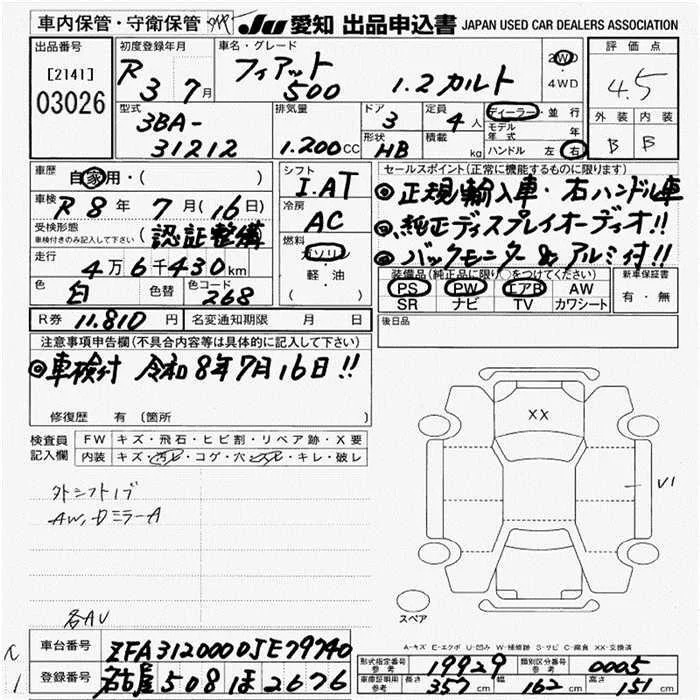 車内保管・守衛保管 JU 愛知 出品申込書 JAPAN USED CAR DEALERS ASSOCIATION
出品番号 [2141] 03026
初度登録年月 R 3 7月
車名・グレード フィアット 500 1.2カルト
2WD ・ 4WD
評価点 4.5
外装 内装
B B
型式 3BA-31212
排気量 1.200CC
ドア 3
形状 HB
定員 4人
積載 kg
ディーラー・並行
モデル年式 年
ハンドル 左 右
車歴 自家用・( )
車検 R 8年 7月(16日)
受検形態 車検付きのみ記入して下さい (認証整備
走行 4万6千430km
色 白 色替 色コード 268
シフト I.AT
冷房 AC
燃料 ガソリン 軽・油 ( )
セールスポイント(正常に機能するものに限ります)
◎正規輸入車・右ハンドル車
◎.純正ディスプレイオーディオ!!
◎バックモニター&アルミ付!!
装備品(純正品に限り○をつけてください)
PS PW エアB AW
SR ナビ TV カワシート
新車保証書
有・無
R券 11.810円 名変通知期限 月 日
後日品
注意事項申告欄(不具合内容等は具体的に記入して下さい)
◎車検付 令和8年7月16日!!
修復歴 有(箇所 )
検査員記入欄
FW キズ・飛石・ヒビ割・リペア跡・X要
内装 キズ・汚レ・コゲ・穴・スレ・キレ・破レ
外シフトノブ
AW,Dミラー A
各AU
XX
V1
スペア
A-キズ E-エクボ U-凹み W-補修跡 S-サビ C-腐食 XX-交換済
車台番号 ZFA3120000JE79740
登録番号 名古屋 508 ほ 2676
形式指定番号 参考 19929 類別区分番号 参考 0005
車庫証明用 参考 長さ 357cm 幅 162cm 高さ 151cm